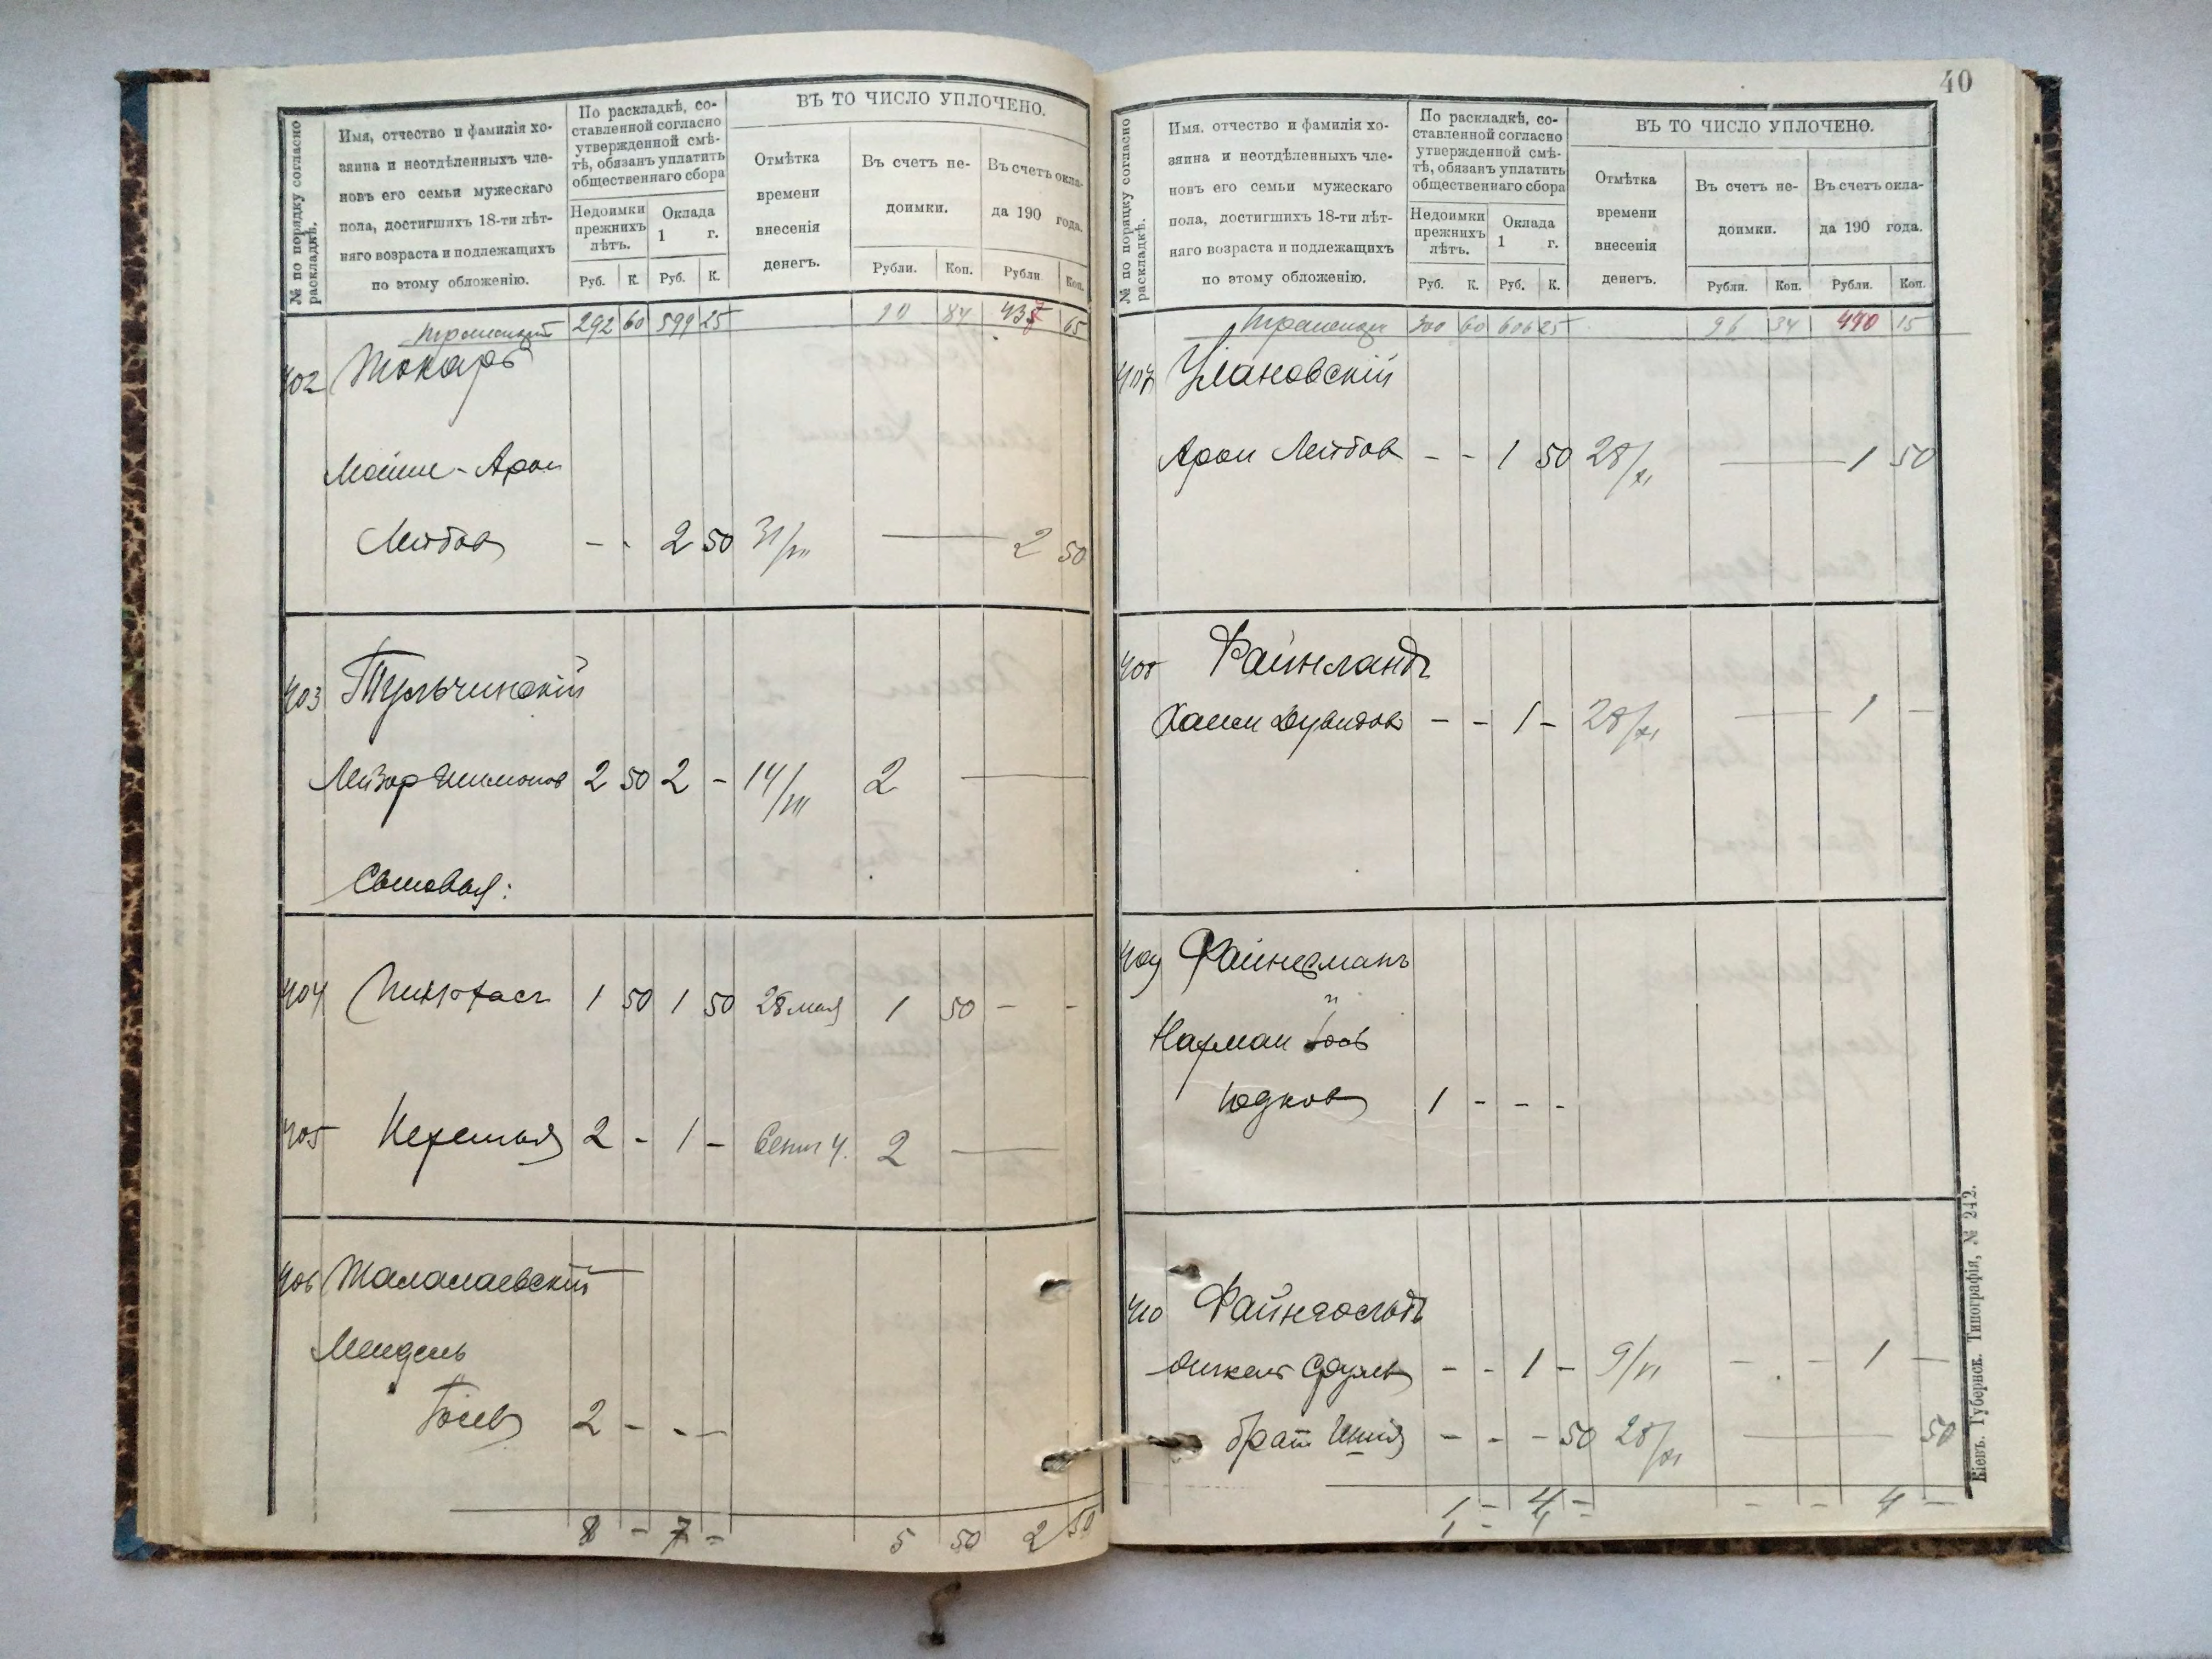 № по порядку согласно раскладкѣ.
Имя, отчество и фамилія хо-
зяина и неотдѣленныхъ чле-
новъ его семьи мужескаго
пола, достигшихъ 18-ти лѣт-
няго возраста и подлежащихъ
по этому обложенію.
По раскладкѣ, со-
ставленной согласно
утвержденной смѣ-
тѣ, обязанъ уплатить
общественнаго сбора
Недоимки
прежнихъ
лѣтъ.
Оклада
1 г.
Руб. К. Руб. К.
ВЪ ТО ЧИСЛО УПЛОЧЕНО.
Отмѣтка
времени
внесенія
денегъ.
Въ счетъ не-
доимки.
Въ счетъ окла-
да 190 года.
Рубли. Коп. Рубли Коп.
292 60 599 25 90 84 437 65
402 Токарь
Мошко-Арон
Лейбов - - 2 50 31/VII — 2 50
403 Тульчинскій
Лейзор Шимонов 2 50 2 - 14/VIII 2 —
Сыновья:
404 Пинхас 1 50 1 50 28 мая 1 50 - -
405 2 - 1 - Сент 4. 2 —
406 Талалаевскій
Мендель
2 - - -
8 - 7 - 5 50 2 50
40
№ по порядку согласно раскладкѣ.
Имя, отчество и фамилія хо-
зяина и неотдѣленныхъ чле-
новъ его семьи мужескаго
пола, достигшихъ 18-ти лѣт-
няго возраста и подлежащихъ
по этому обложенію.
По раскладкѣ, со-
ставленной согласно
утвержденной смѣ-
тѣ, обязанъ уплатить
общественнаго сбора
Недоимки
прежнихъ
лѣтъ.
Оклада
1 г.
Руб. К. Руб. К.
ВЪ ТО ЧИСЛО УПЛОЧЕНО.
Отмѣтка
времени
внесенія
денегъ.
Въ счетъ не-
доимки.
Въ счетъ окла-
да 190 года.
Рубли. Коп. Рубли. Коп.
300 60 606 25 96 34 440 15
407 Улановскій
Арон Лейбов - - 1 50 28/XI — 1 50
408 Файнландъ
Хаим Дувидов - - 1 - 28/XI — 1 —
409 Файнерманъ
Нахман
Юдков 1 - - -
410 Файнгольдъ
Срулев - - 1 - 9/VI - - 1 -
брат - - - 50 28/XI — 50
1 - 4 - - - 4 -
Кіевъ. Губернск. Типографія, № 242.